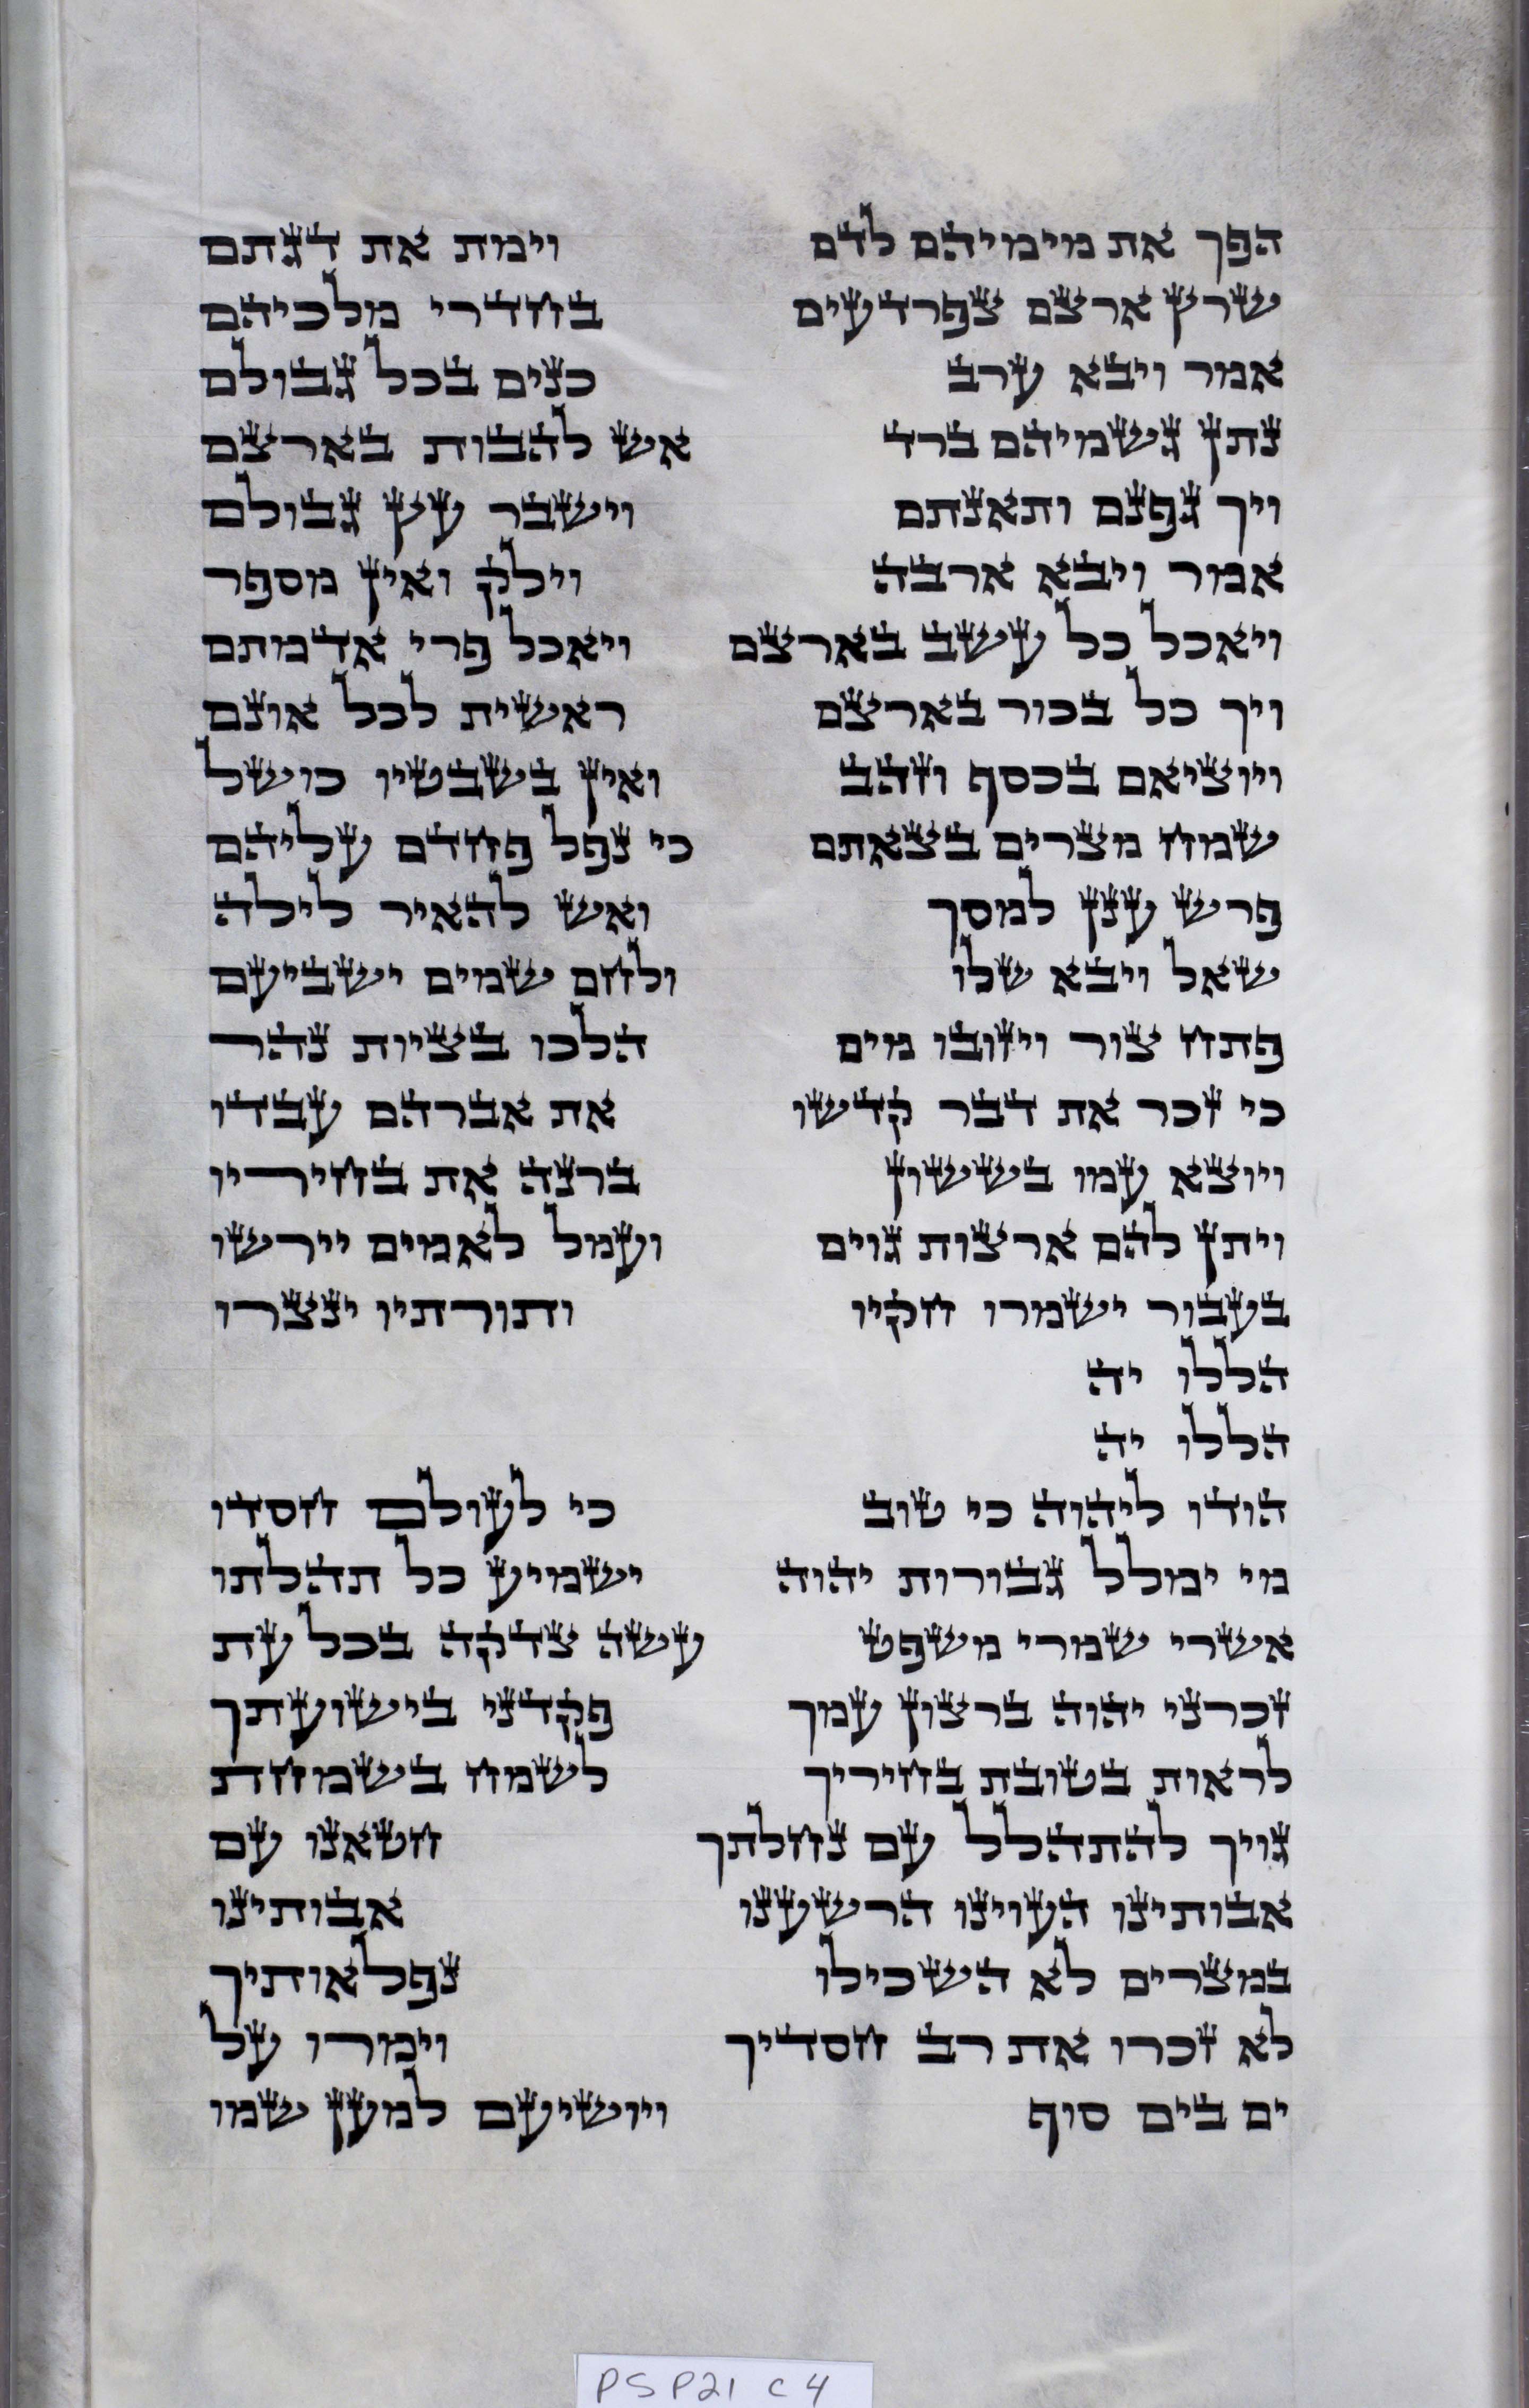 הפך את מימיהם לדם וימת את דגתם
שרץ ארצם צפרדעים בחדרי מלכיהם
אמר ויבא ערב כנים בכל גבולם
נתן גשמיהם ברד אש להבות בארצם
ויך גפנם ותאנתם וישבר עץ גבולם
אמר ויבא ארבה וילק ואין מספר
ויאכל כל עשב בארצם ויאכל פרי אדמתם
ויך כל בכור בארצם ראשית לכל אונם
ויוציאם בכסף וזהב ואין בשבטיו כושל
שמח מצרים בצאתם כי נפל פחדם עליהם
פרש ענן למסך ואש להאיר לילה
שאל ויבא שלו ולחם שמים ישביעם
פתח צור ויזובו מים הלכו בציות נהר
כי זכר את דבר קדשו את אברהם עבדו
ויוצא עמו בששון ברנה את בחיריו
ויתן להם ארצות גוים ועמל לאמים יירשו
בעבור ישמרו חקיו ותורתיו ינצרו
הללו יה
הללו יה
הודו ליהוה כי טוב כי לעולם חסדו
מי ימלל גבורות יהוה ישמיע כל תהלתו
אשרי שמרי משפט עשה צדקה בכל עת
זכרני יהוה ברצון עמך פקדני בישועתך
לראות בטובת בחיריך לשמח בשמחת
גויך להתהלל עם נחלתך חטאנו עם
אבותינו העוינו הרשענו אבותינו
במצרים לא השכילו נפלאותיך
לא זכרו את רב חסדיך וימרו על
ים בים סוף ויושיעם למען שמו
PS P21 C 4